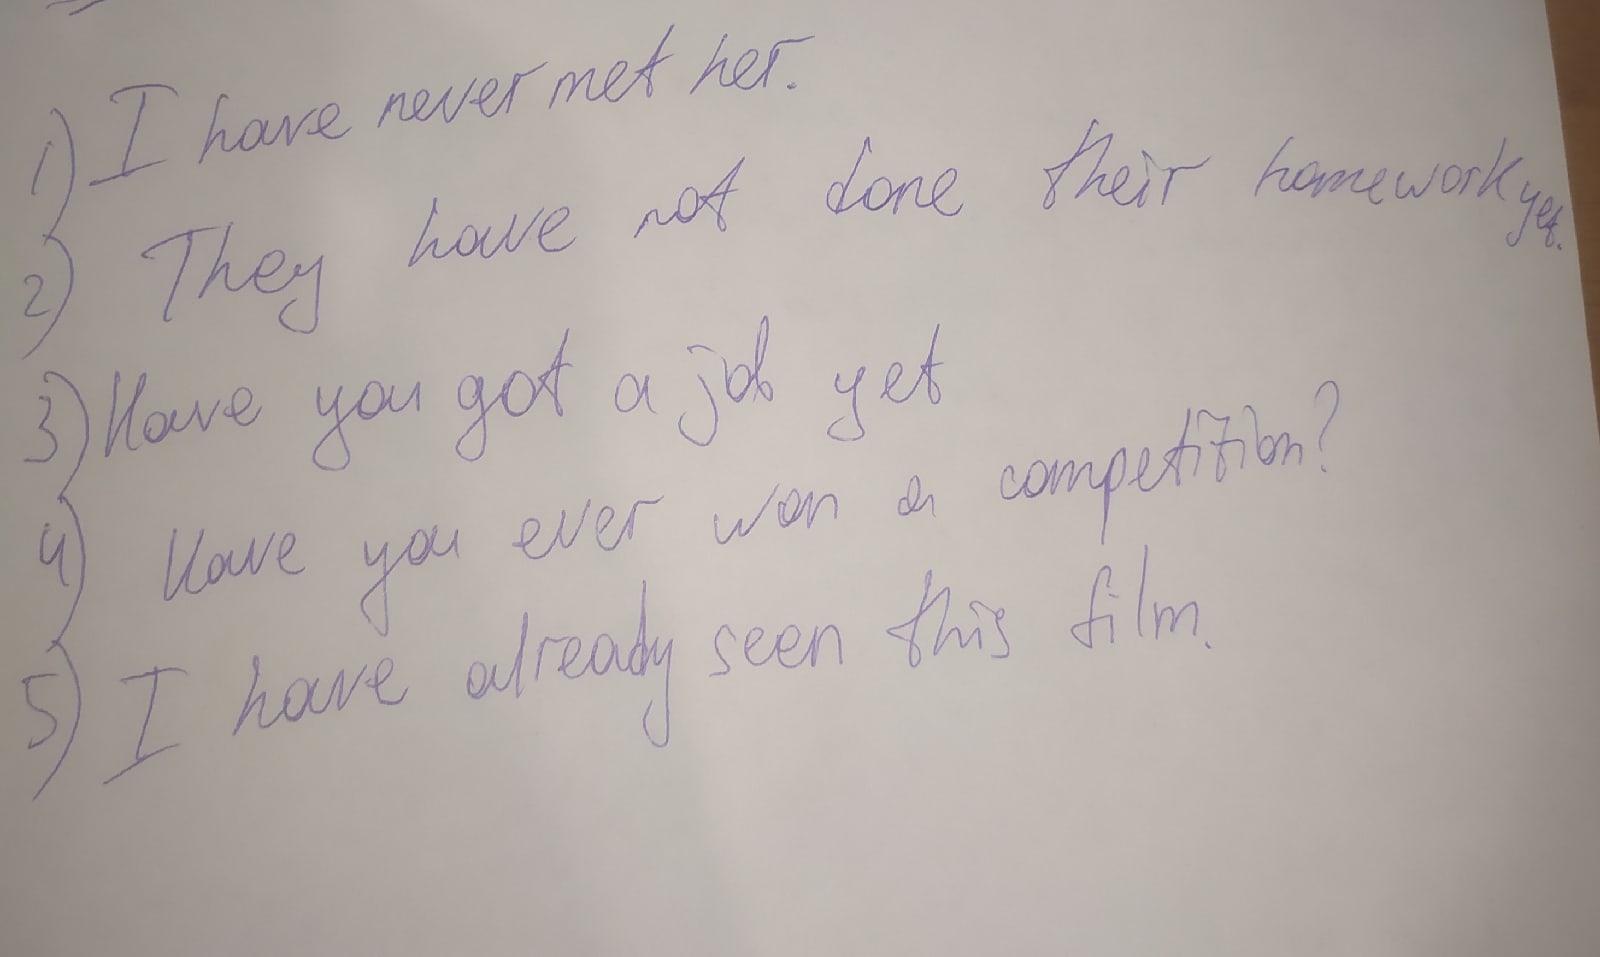 1) I have never met her.
2) They have not done their homework yet.
3) Have you got a job yet
4) Have you ever won a competition?
5) I have already seen this film.